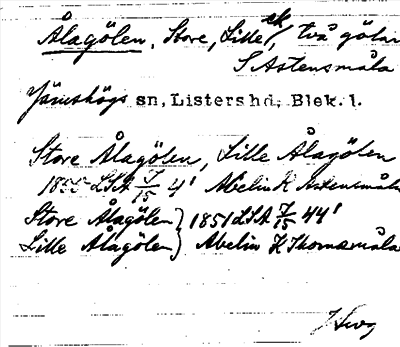 Ålagölen, Store, Lille, två gölar
S Astensmåla
Jämshögs sn, Listers hd, Blek. l.
Store Ålagölen, Lille Ålagölen
1855 LSA J/15 41 Abelin K Astensmåla
Store Ålagölen } 1851 LSA J/15 44'
Lille Ålagölen } Abelin K Thomasmåla